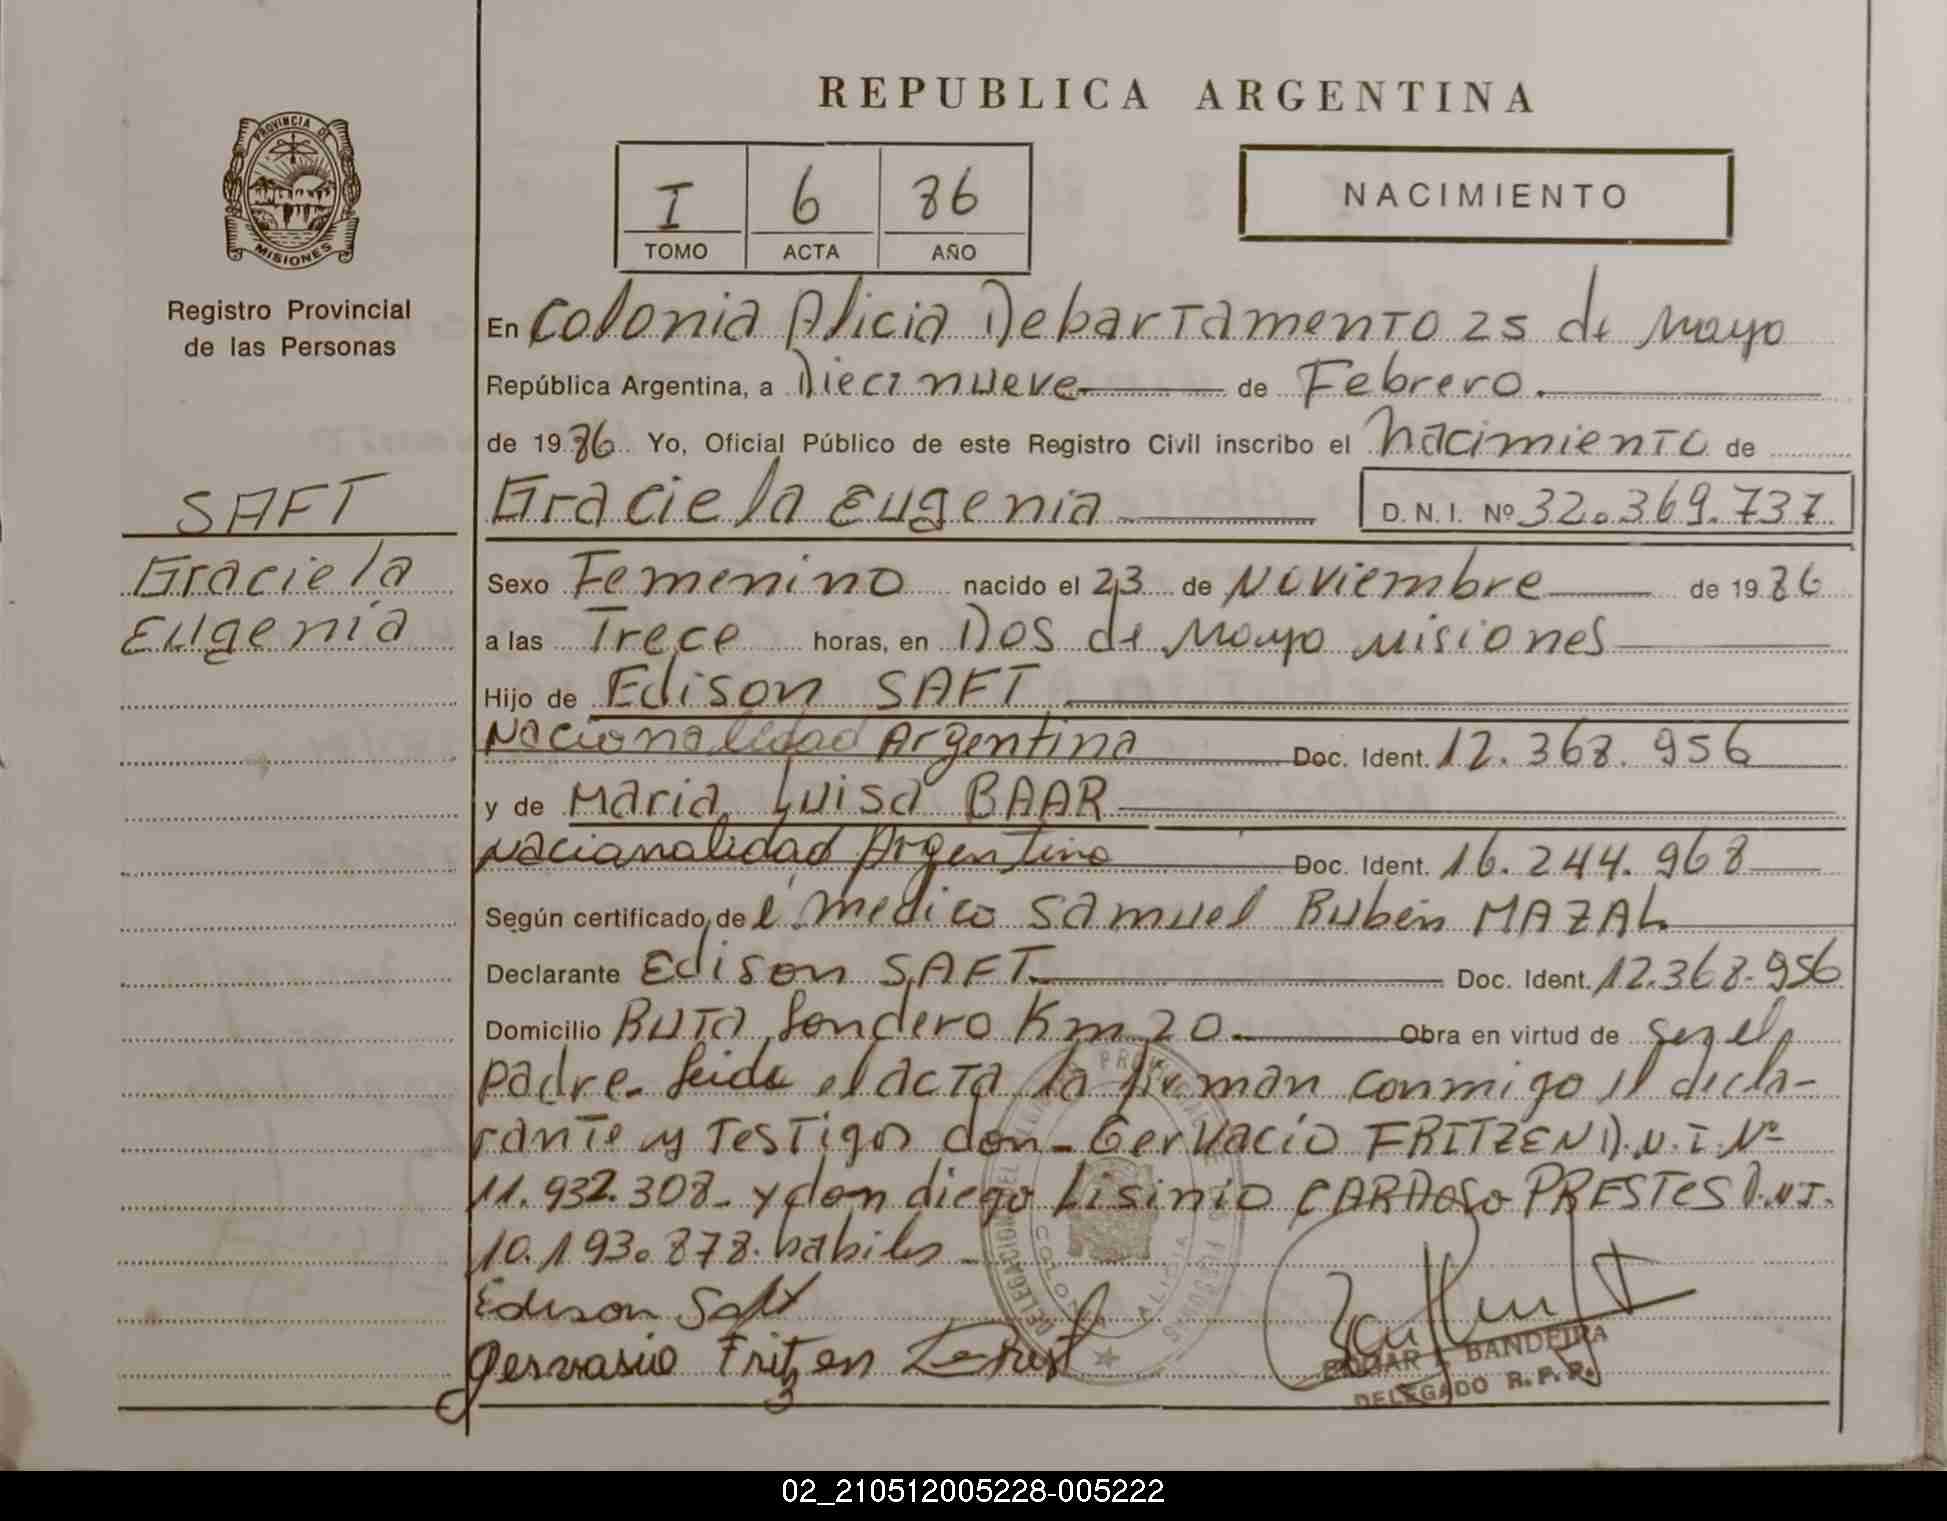 REPUBLICA ARGENTINA
PROVINCIA DE
MISIONES
Registro Provincial
de las Personas
I 6 86
TOMO ACTA AÑO
NACIMIENTO
En Colonia Alicia Debartamento 25 de Mayo
República Argentina, a Diecinueve de Febrero.
de 1986 Yo, Oficial Público de este Registro Civil inscribo el Nacimiento de
Graciela Eugenia D. N. I. Nº 32.369.737
SAFT
Graciela
Eugenia
Sexo Femenino nacido el 23 de Noviembre de 1986
a las Trece horas, en Dos de Mayo Misiones
Hijo de Edison SAFT
Nacionalidad Argentina Doc. Ident. 12.368.956
y de Maria Luisa BAAR
Nacionalidad Argentina Doc. Ident. 16.244.968
Según certificado de l medico Samuel Ruben MAZAL
Declarante Edison SAFT Doc. Ident. 12.368.956
Domicilio Ruta Km 20 Obra en virtud de ser el
padre. leida el acta la firman conmigo el decla-
rante y Testigos don - Gervacio FRITZEN D.N.I. Nº
11.932.308 - y don diego Lisinio CARDOSO PRESTES D.N.I.
10.193.878. habiles
Edison Saft
Gervasio Fritzen
BANDEIRA
DELEGADO R. P. P.
COLONIA ALICIA
02_210512005228-005222